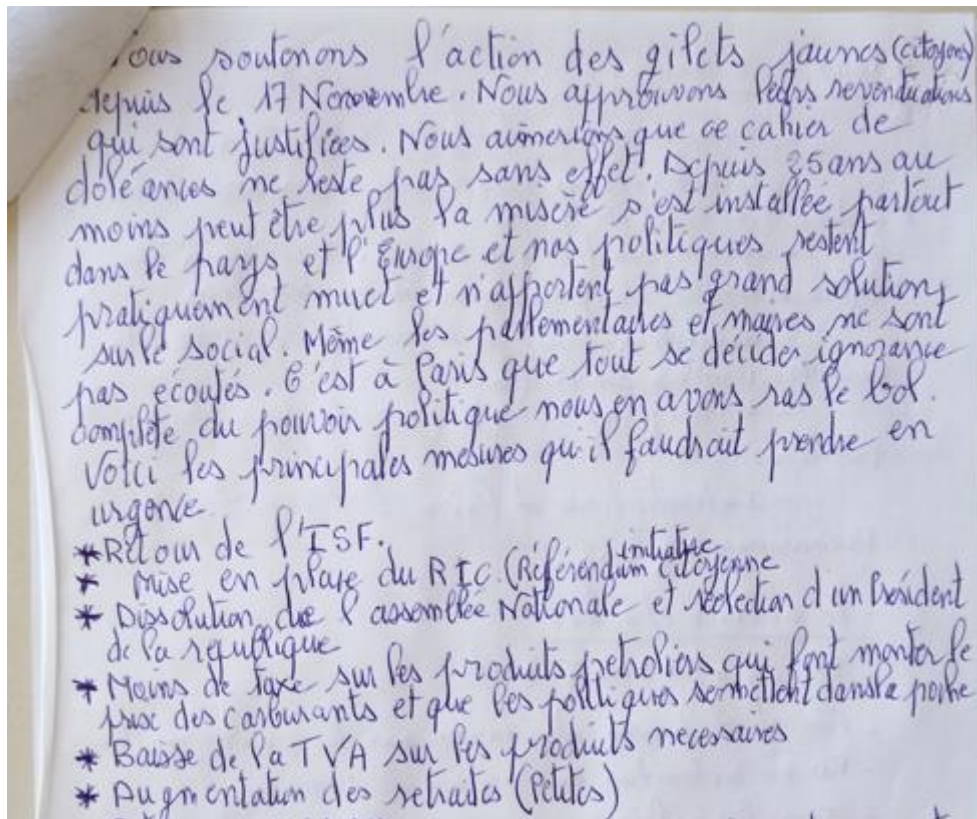 ous soutenons l'action des gilets jaunes (citoyens)
depuis le 17 Novembre. Nous approuvons leurs revendications
qui sont justifiées. Nous aimerions que ce cahier de
doléances ne reste pas sans effet. Depuis 25 ans au
moins peut être plus la misère s'est installée partout
dans le pays et l'Europe et nos politiques restent
pratiquement muet et n'apportent pas grand solution
sur le social. Même les parlementaires et maires ne sont
pas ecoutés. C'est à Paris que tout se décider ignorance
complète du pouvoir politique nous en avons ras le bol.
Voici les principales mesures qu'il faudrait prendre en
urgence
* Retour de l'ISF.
* Mise en place du RIC. (Référendum initiative citoyenne
* Dissolution de l'assemblée Nationale et réélection d'un Président
de la republique
* Moins de taxe sur les produits petroliers qui font monter le
prix des carburants et que les politiques se mettent dans la poche
* Baisse de la TVA sur les produits necessaires
* Augmentation des retraites (Petites)